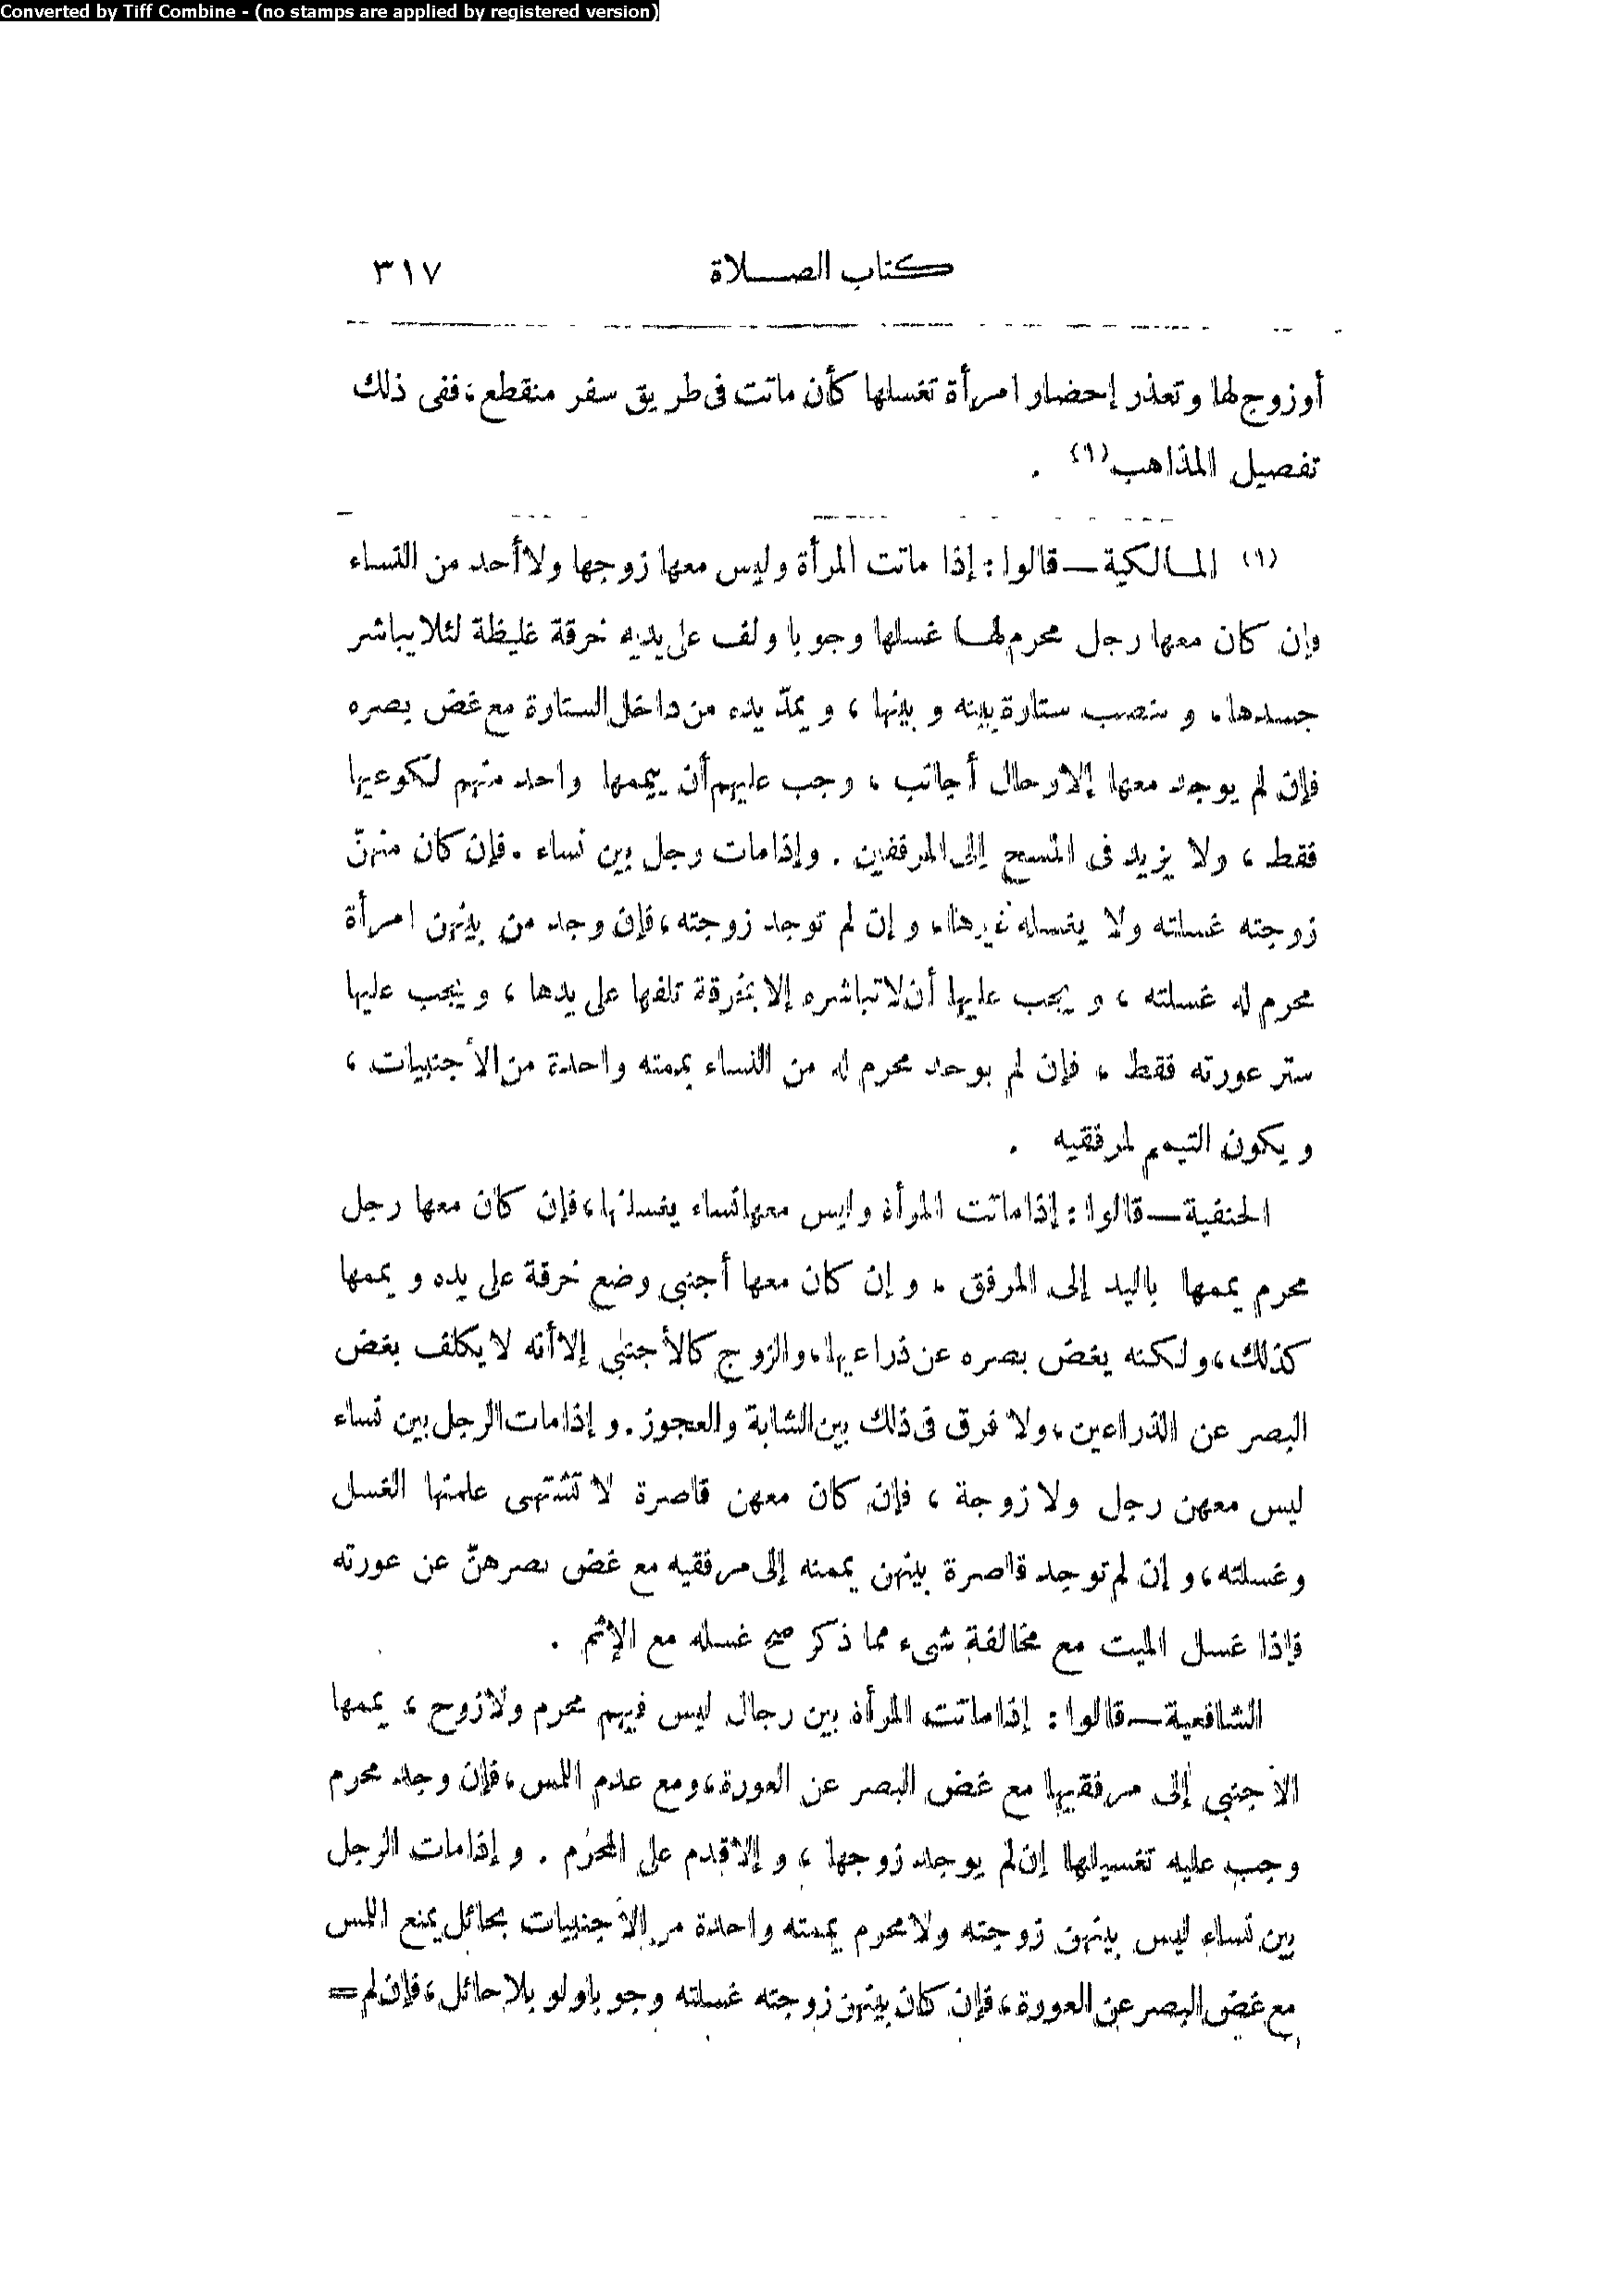 Converted by Tiff Combine - (no stamps are applied by registered version)
كتاب الصلاة ٣١٧
أو زوج لها وتعذر إحضار امرأة تغسلها كأن ماتت فى طريق سفر منقطع، ففى ذلك
تفصيل المذاهب (١) .
(١) المالكية — قالوا : إذا ماتت المرأة وليس معها زوجها ولا أحد من النساء
وإن كان معها رجل محرم لها غسلها وجوبا ولف على يديه خرقة غليظة لئلا يباشر
جسدها، وينصب ستارة بينه وبينها ، ويمدّ يده من داخل الستارة مع غض بصره
فإن لم يوجد معها إلا رجال أجانب ، وجب عليهم أن ييممها واحد منهم لكوعيها
فقط ، ولا يزيد فى المسح إلى المرفقين . وإذا مات رجل بين نساء . فإن كان منهنّ
زوجته غسلته ولا يغسله غيرها، وإن لم توجد زوجته، فإن وجد من بينهن امرأة
محرم له غسلته ، ويجب عليها أن لا تباشره إلا بخرقة تلفها على يدها ، ويجب عليها
ستر عورته فقط ، فإن لم يوجد محرم له من النساء يممته واحدة من الأجنبيات ،
ويكون التيمم لمرفقيه .
الحنفية — قالوا : إذا ماتت المرأة وليس معها نساء يغسلنها، فإن كان معها رجل
محرم يممها باليد إلى المرفق ، وإن كان معها أجنبى وضع خرقة على يده ويممها
كذلك، ولكنه يغض بصره عن ذراعيها، والزوج كالأجنبى إلا أنه لا يكلف بغض
البصر عن الذراعين، ولا فرق فى ذلك بين الشابة والعجوز. وإذا مات الرجل بين نساء
ليس معهن رجل ولا زوجة ، فإن كان معهن قاصرة لا تشتهى علمنها الغسل
وغسلته، وإن لم توجد قاصرة بينهن يممنه إلى مرفقيه مع غض بصرهنّ عن عورته
فإذا غسل الميت مع مخالفة شىء مما ذكر صح غسله مع الإثم .
الشافعية — قالوا : إذا ماتت المرأة بين رجال ليس فيهم محرم ولا زوج ، يممها
الأجنبى إلى مرفقيها مع غض البصر عن العورة، ومع عدم اللمس، فإن وجد محرم
وجب عليه تغسيلها إن لم يوجد زوجها ، وإلا قدم على المحرم . وإذا مات الرجل
بين نساء ليس بينهن زوجته ولا محرم يممته واحدة من الأجنبيات بحائل يمنع اللمس
مع غض البصر عن العورة، فإن كان بينهن زوجته غسلته وجوبا ولو بلا حائل، فإن لم =